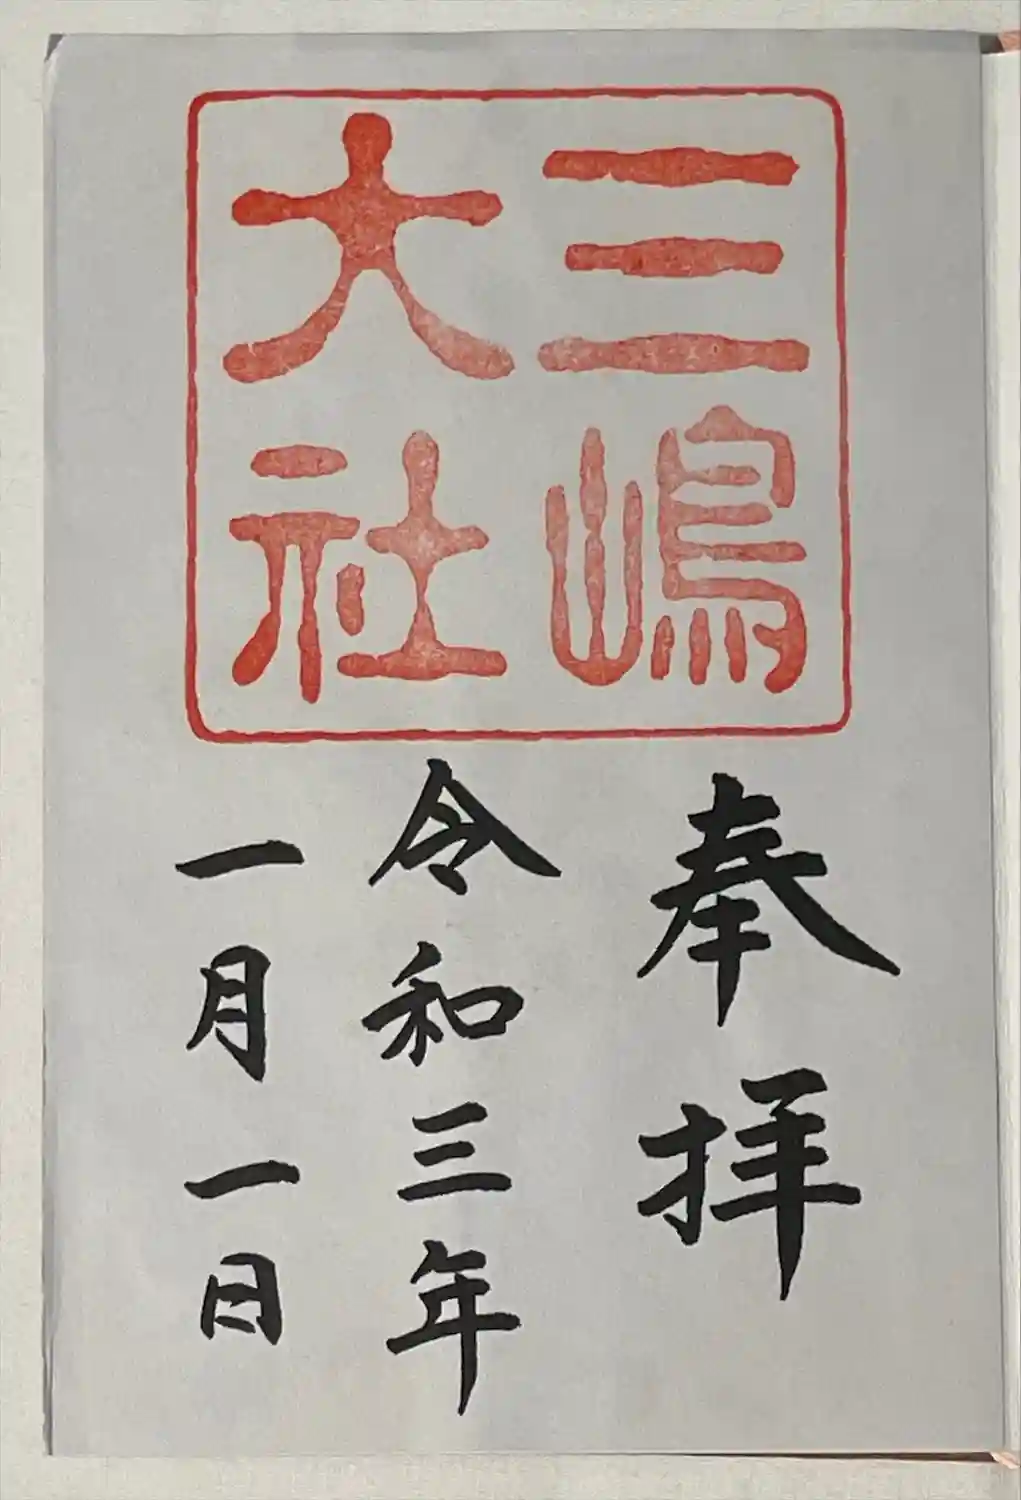 三嶋
大社
奉拝
令和三年
一月一日